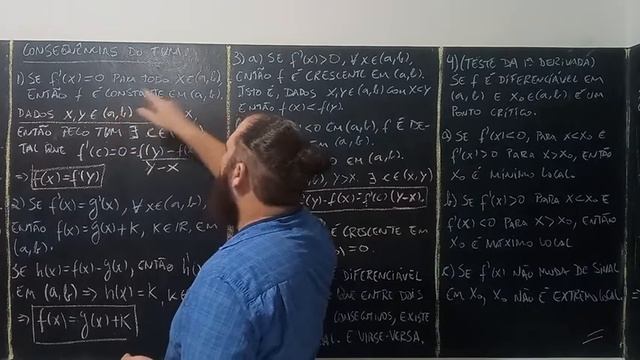 CONSEQUÊNCIAS DO TVM:
1) SE f'(x)=0 PARA TODO x∈(a,b),
ENTÃO f É CONSTANTE EM (a,b).
DADOS x,y∈(a,b)
ENTÃO PELO TVM ∃ c∈
TAL QUE f'(c)=0=f(y)-f
y-x
⇒ f(x)=f(y)
2) SE f'(x)=g'(x), ∀x∈(a,b),
ENTÃO f(x)=g(x)+K, K∈IR, EM
(a,b).
SE h(x)=f(x)-g(x), ENTÃO h'
EM (a,b) ⇒ h(x)=K, K∈
⇒ f(x)=g(x)+K
3) a) SE f'(x)>0, ∀x∈(a,b),
ENTÃO f É CRESCENTE EM (a,b).
ISTO É, DADOS x,y∈(a,b) COM x<y
ENTÃO f(x)<f(y).
<0 EM (a,b), f É DE-
EM (a,b).
y>x. ∃ c∈(x,y)
f(y)-f(x)=f'(c)(y-x).
É CRESCENTE EM
=0.
DIFERENCIÁVEL
QUE ENTRE DOIS
CONSECUTIVOS, EXISTE
E VICE-VERSA.
4) (TESTE DA 1ª DERIVADA)
SE f É DIFERENCIÁVEL EM
(a,b) E x₀∈(a,b) É UM
PONTO CRÍTICO.
a) SE f'(x)<0, PARA x<x₀ E
f'(x)>0 PARA x>x₀, ENTÃO
x₀ É MÍNIMO LOCAL.
b) SE f'(x)>0 PARA x<x₀ E
f'(x)<0 PARA x>x₀, ENTÃO
x₀ É MÁXIMO LOCAL
c) SE f'(x) NÃO MUDA DE SINAL
EM x₀, x₀ NÃO É EXTREMO LOCAL.